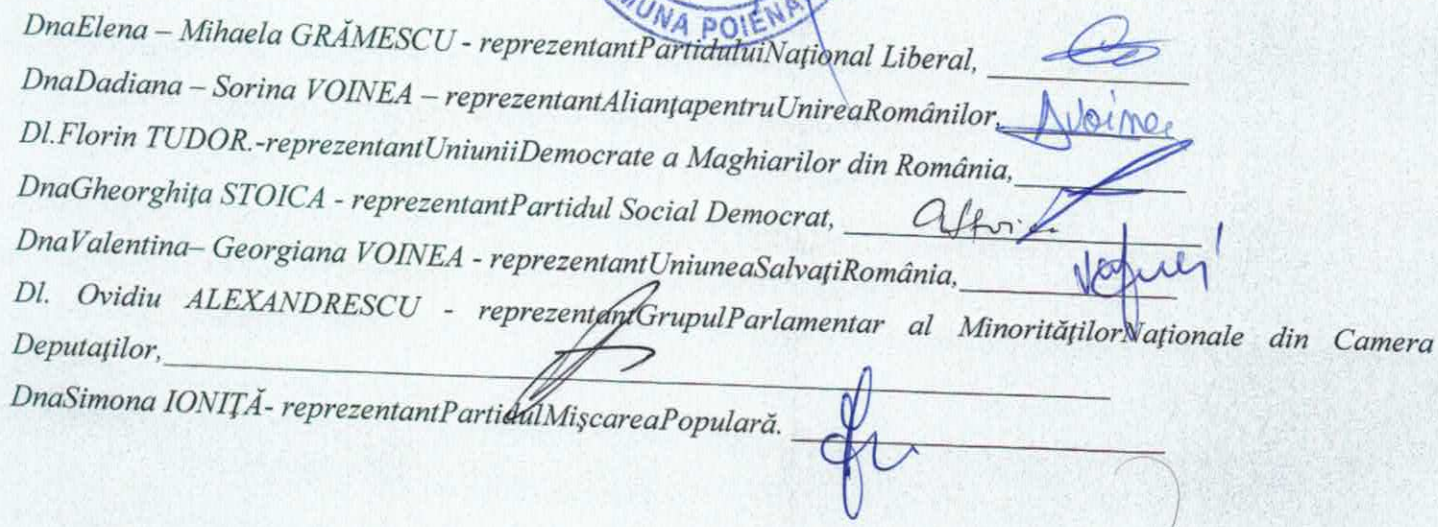 MUNA POIENA
DnaElena – Mihaela GRĂMESCU - reprezentantPartiduluiNaţional Liberal,
DnaDadiana – Sorina VOINEA – reprezentantAlianţapentruUnireaRomânilor, AVoinea
Dl.Florin TUDOR.-reprezentantUniuniiDemocrate a Maghiarilor din România,
DnaGheorghiţa STOICA - reprezentantPartidul Social Democrat,
DnaValentina– Georgiana VOINEA - reprezentantUniuneaSalvaţiRomânia,
Dl. Ovidiu ALEXANDRESCU - reprezentantGrupulParlamentar al MinorităţilorNaţionale din Camera
Deputaţilor,
DnaSimona IONIŢĂ- reprezentantPartidulMişcareaPopulară.